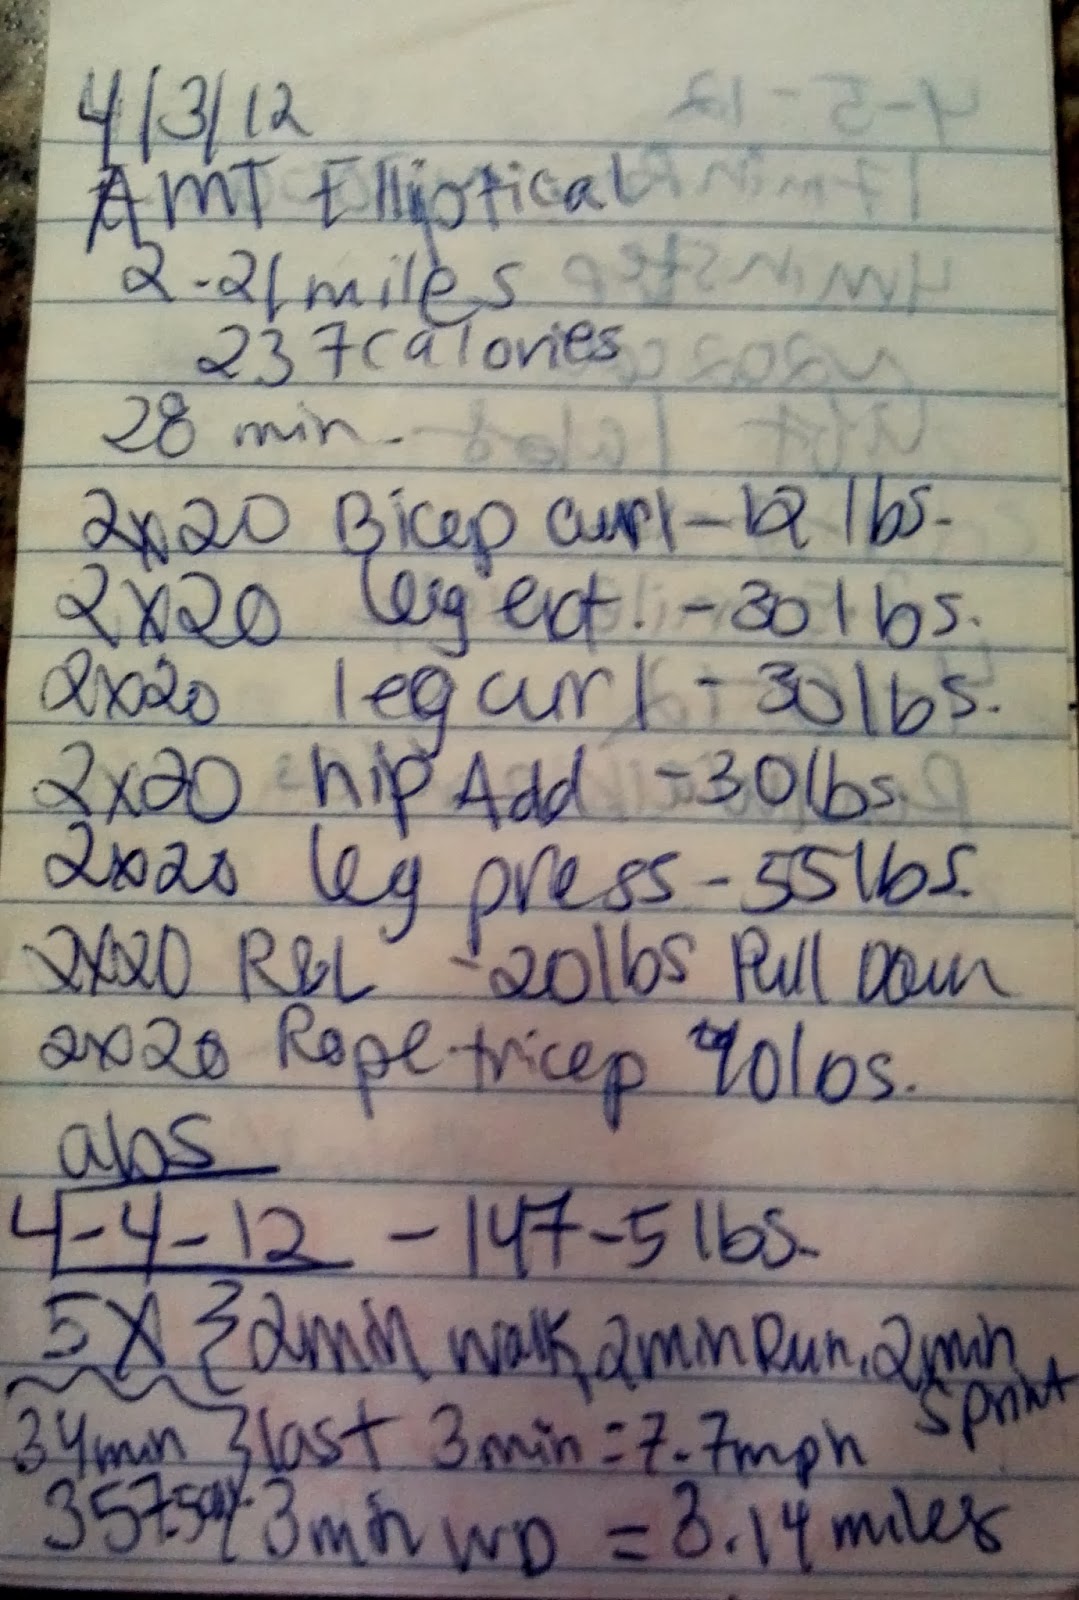 4/3/12
AMT Elliptical
2.21 miles
237 calories
28 min.
2x20 Bicep curl - 12 lbs.
2x20 leg ext. - 30 lbs.
2x20 leg curl - 30 lbs.
2x20 hip Add - 30 lbs.
2x20 leg press - 55 lbs.
2x20 R&L - 20 lbs Pull Down
2x20 Rope tricep 40 lbs.
abs
4-4-12 - 147.5 lbs.
5X { 2min walk, 2min Run, 2min
sprint
34min } last 3min = 7.7mph
357.5 3min WD = 3.14 miles